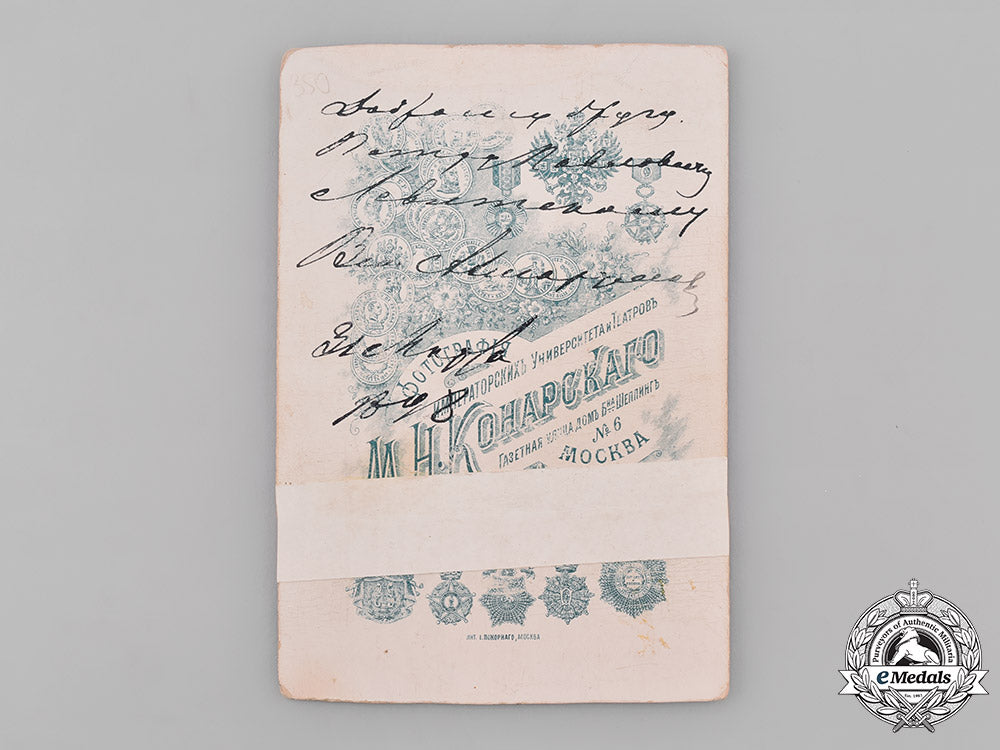 350
Доброму другу.
Петру Павловичу
Левитскому
ФОТОГРАФІЯ
ИМПЕРАТОРСКИХЪ УНИВЕРСИТЕТА И ТЕАТРОВЪ
М. Н. КОНАРСКАГО
ГАЗЕТНАЯ УЛИЦА ДОМЪ Бна ШЕППИНГЪ
№ 6
МОСКВА
ЛИТ. І. ПОКОРНАГО, МОСКВА
Purveyors of Authentic Militaria
eMedals